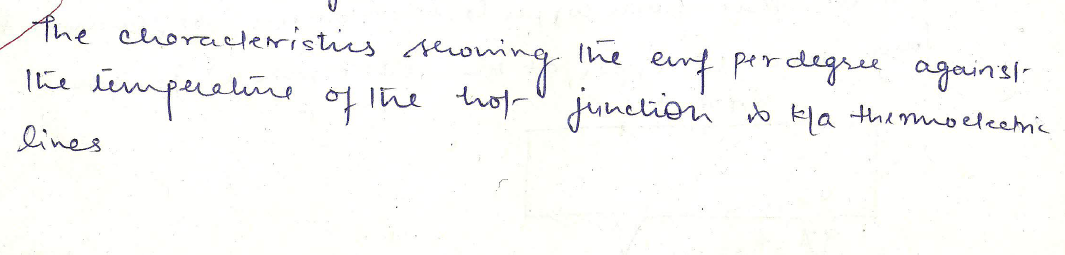 The characteristics showing the emf per degree against
the temperature of the hot junction is k/a thermoelectric
lines